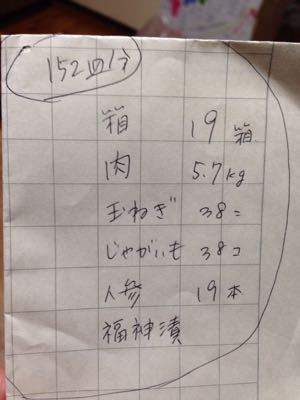 152皿分
箱 19箱
肉 5.7kg
玉ねぎ 38コ
じゃがいも 38コ
人参 19本
福神漬